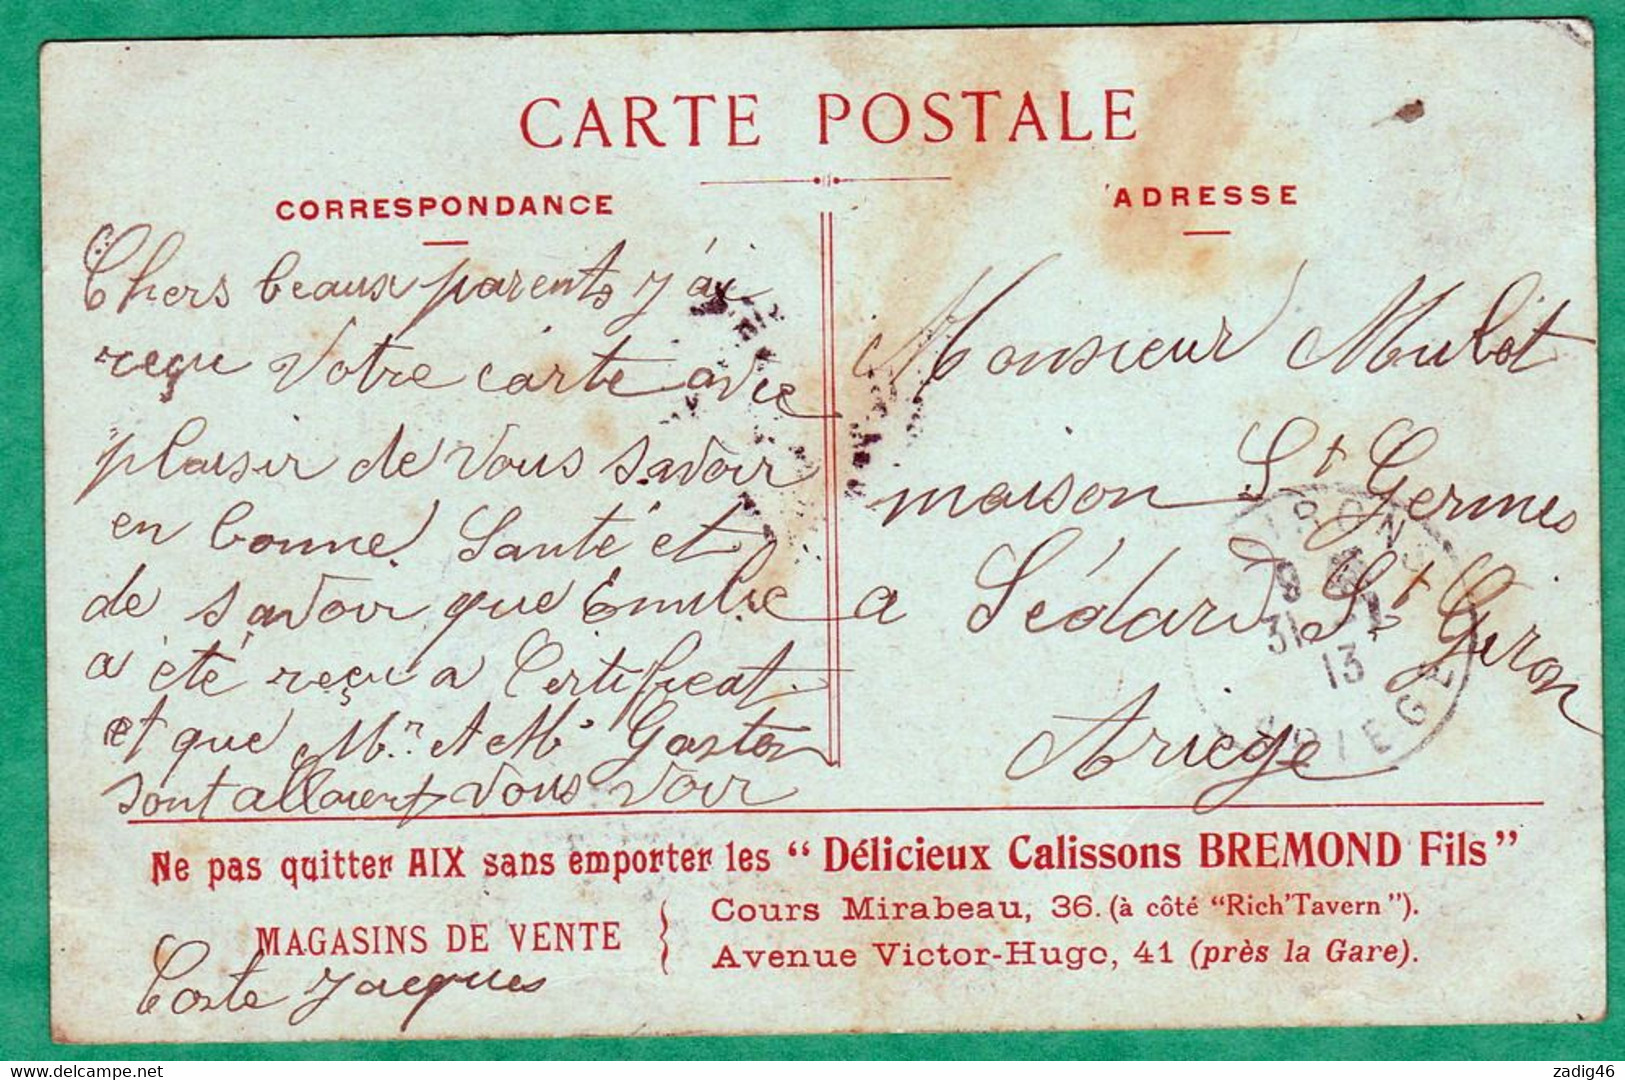 CARTE POSTALE
CORRESPONDANCE
Chers beaux parents j'ai
reçu votre carte avec
plaisir de vous savoir
en bonne Santé et
de savoir que Emilie
a été reçu a Certificat
et que Mr. et Me Gaston
sont allaient vous voir
Coste Jacques
ADRESSE
Monsieur Mulot
maison St Germes
a Lédar St Giron
Ariège
IRONS
31
13
ARIEGE
Ne pas quitter AIX sans emporter les “ Délicieux Calissons BREMOND Fils ”
MAGASINS DE VENTE
Cours Mirabeau, 36. (à côté “Rich'Tavern”).
Avenue Victor-Hugo, 41 (près la Gare).
zadig46